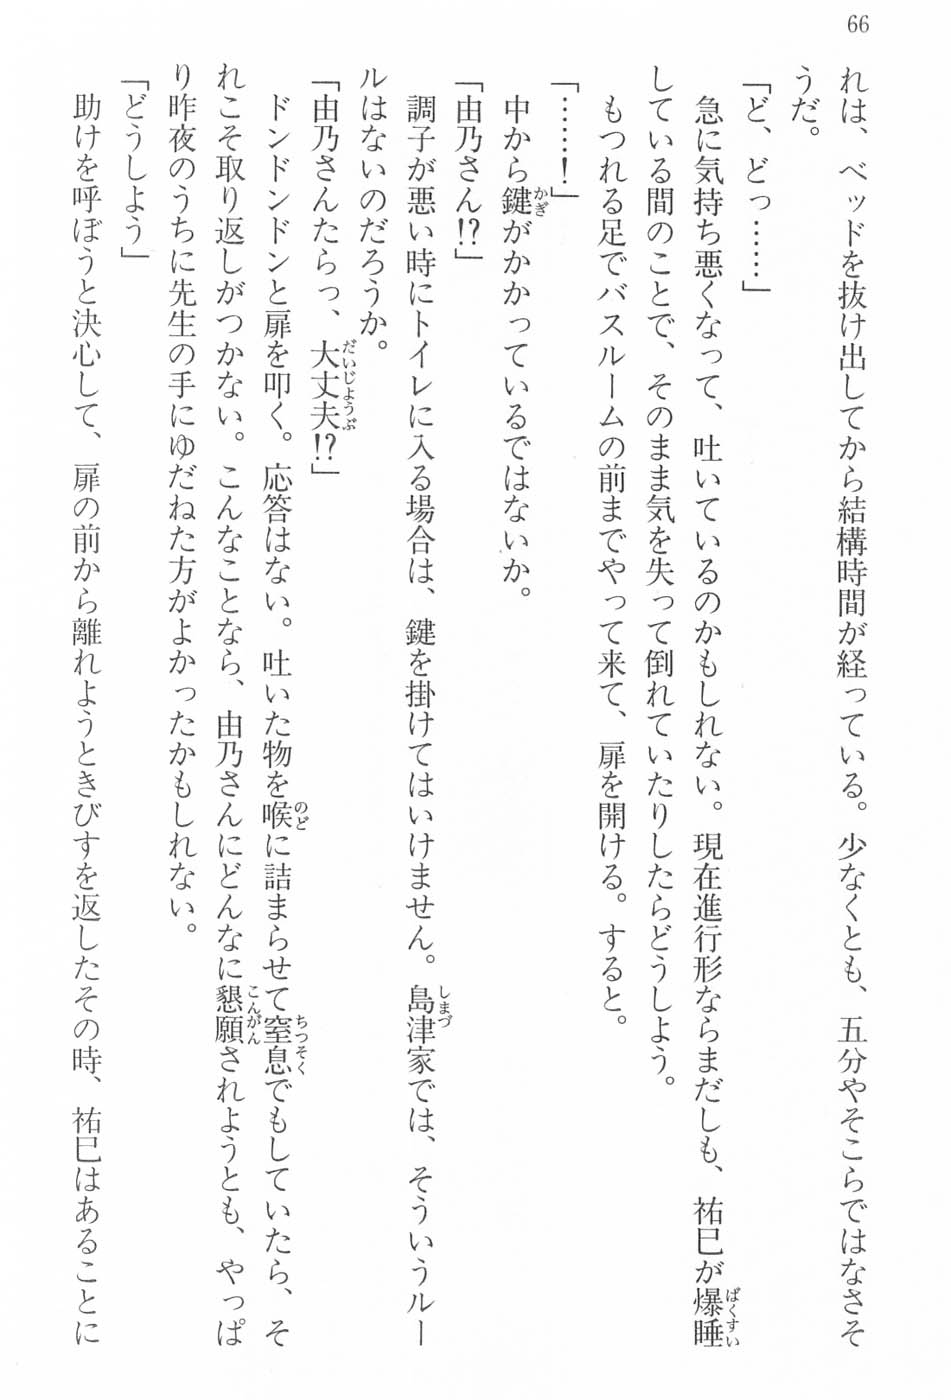 66
れは、ベッドを抜け出してから結構時間が経っている。少なくとも、五分やそこらではなさそ
うだ。
「ど、どっ……」
急に気持ち悪くなって、吐いているのかもしれない。現在進行形ならまだしも、祐巳が爆睡
している間のことで、そのまま気を失って倒れていたりしたらどうしよう。
もつれる足でバスルームの前までやって来て、扉を開ける。すると。
「……！」
中から鍵がかかっているではないか。
「由乃さん!?」
調子が悪い時にトイレに入る場合は、鍵を掛けてはいけません。島津家では、そういうルー
ルはないのだろうか。
「由乃さんたらっ、大丈夫!?」
ドンドンドンと扉を叩く。応答はない。吐いた物を喉に詰まらせて窒息でもしていたら、そ
れこそ取り返しがつかない。こんなことなら、由乃さんにどんなに懇願されようとも、やっぱ
り昨夜のうちに先生の手にゆだねた方がよかったかもしれない。
「どうしよう」
助けを呼ぼうと決心して、扉の前から離れようときびすを返したその時、祐巳はあることに